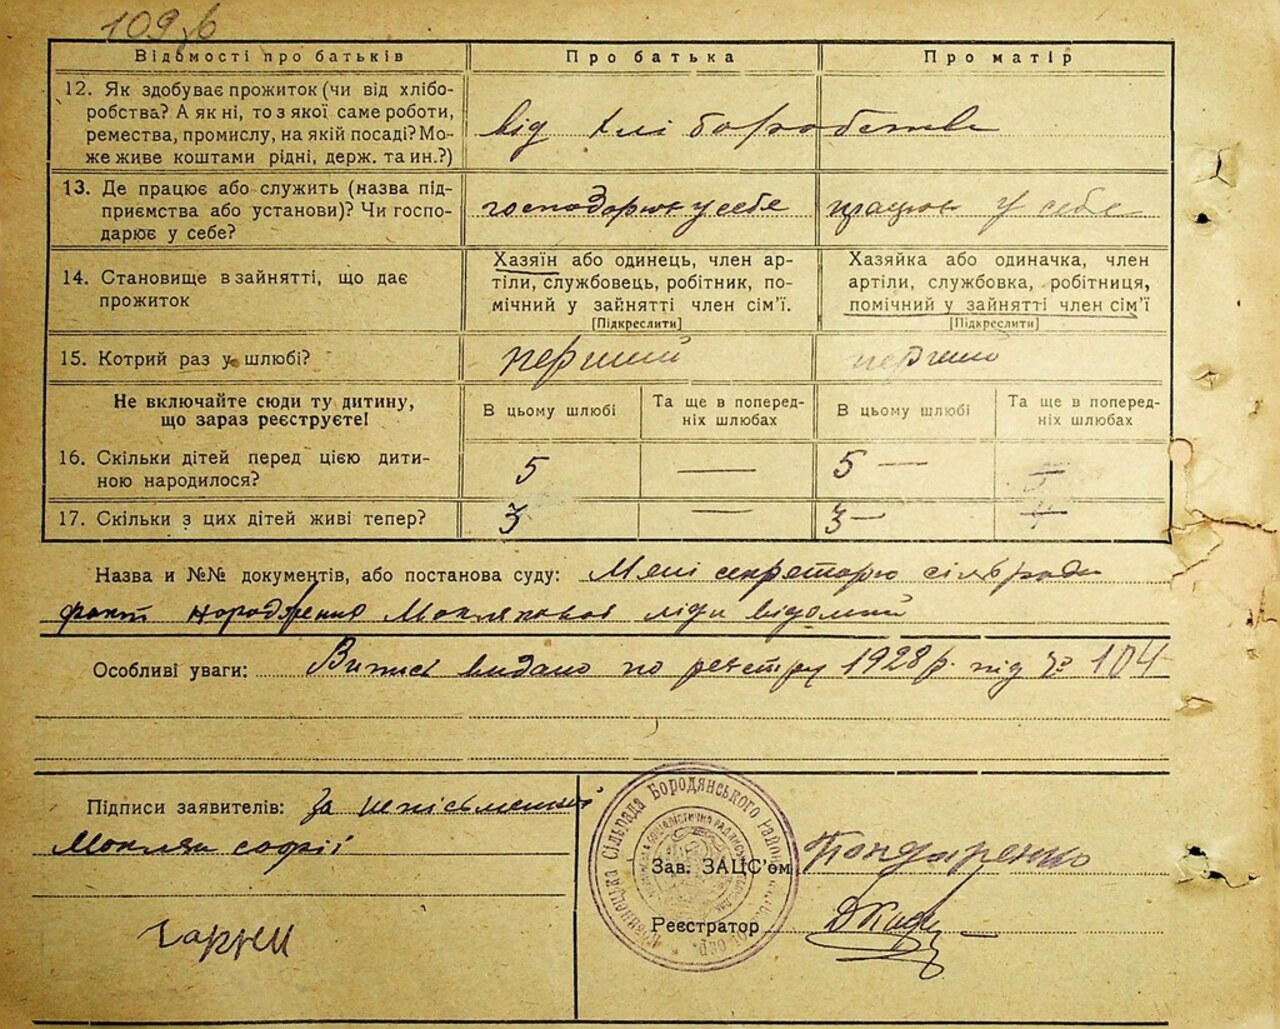 109 зв
Відомості про батьків
Про батька
Про матір
12. Як здобуває прожиток (чи від хлібо-
робства? А як ні, то з якої саме роботи,
ремества, промислу, на якій посаді? Мо-
же живе коштами рідні, держ. та ин.?)
від хліборобства
13. Де працює або служить (назва під-
приємства або установи)? Чи госпо-
дарює у себе?
господорює у себе
працює у себе
14. Становище в зайнятті, що дає
прожиток
Хазяїн або одинець, член ар-
тіли, службовець, робітник, по-
мічний у зайнятті член сім'ї.
[Підкреслити]
Хазяйка або одиначка, член
артіли, службовка, робітниця,
помічний у зайнятті член сім'ї
[Підкреслити]
15. Котрий раз у шлюбі?
перший
перший
Не включайте сюди ту дитину,
що зараз реєструєте!
В цьому шлюбі
Та ще в поперед-
ніх шлюбах
В цьому шлюбі
Та ще в поперед-
ніх шлюбах
16. Скільки дітей перед цією дити-
ною народилося?
5
—
5 —
17. Скільки з цих дітей живі тепер?
3
—
3 —
Назва и №№ документів, або постанова суду: Мені секреторю сільради
факт народження Моклякової Ліди відомий
Особливі уваги: Випись видано по реєстру 1928 р. під № 104
Підписи заявителів: За неписьменної
Мокляк Софії
Сільрада Бородянського району
Зав. ЗАЦС'ом Бондаренко
Реєстратор